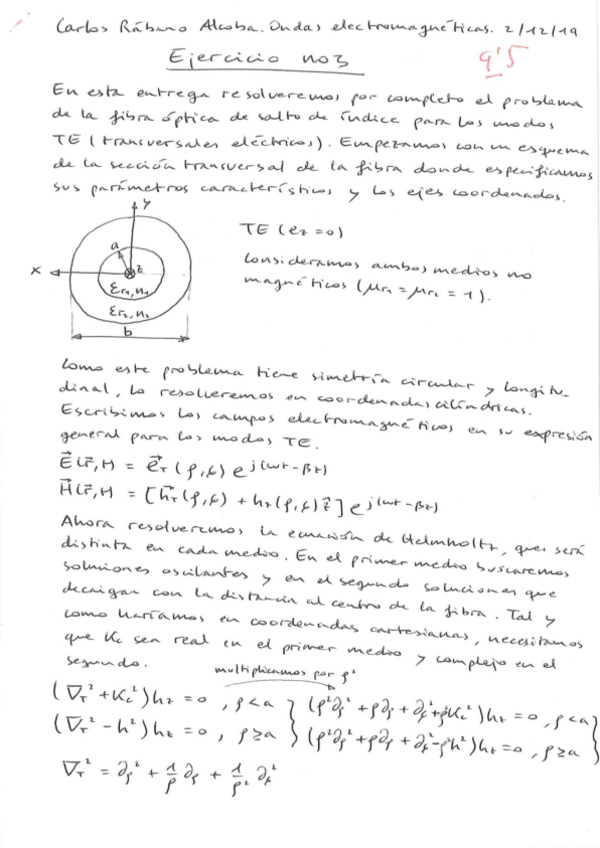 Carlos Rábano Alcoba. Ondas electromagnéticas. 2/12/19
Ejercicio no3
9'5
En esta entrega resolveremos por completo el problema
de la fibra óptica de salto de índice para los modos
TE (transversales eléctricos). Empezamos con un esquema
de la sección transversal de la fibra donde especificamos
sus parámetros característicos y los ejes coordenados.
y
a
x
z
εr₁, n₁
εr₂, n₂
b
TE (e_z = 0)
Consideramos ambos medios no
magnéticos (μr₁ = μr₂ = 1).
Como este problema tiene simetría circular y longitu-
dinal, lo resolveremos en coordenadas cilíndricas.
Escribimos los campos electromagnéticos en su expresión
general para los modos TE.
E⃗(r⃗,t) = e⃗_T(ρ,φ) e^{j(ωt - βz)}
H⃗(r⃗,t) = [h⃗_T(ρ,φ) + h_z(ρ,φ) ẑ] e^{j(ωt - βz)}
Ahora resolveremos la ecuación de Helmholtz, que será
distinta en cada medio. En el primer medio buscaremos
soluciones oscilantes y en el segundo soluciones que
decaigan con la distancia al centro de la fibra. Tal y
como haríamos en coordenadas cartesianas, necesitamos
que Kc sea real en el primer medio y complejo en el
segundo.
multiplicamos por ρ²
(∇_T² + K_c²) h_z = 0, ρ < a } (ρ²∂_ρ² + ρ∂_ρ + ∂_φ² + ρ²K_c²) h_z = 0, ρ < a }
(∇_T² - h²) h_z = 0, ρ ≥ a } (ρ²∂_ρ² + ρ∂_ρ + ∂_φ² - ρ²h²) h_z = 0, ρ ≥ a }
∇_T² = ∂_ρ² + 1/ρ ∂_ρ + 1/ρ² ∂_φ²